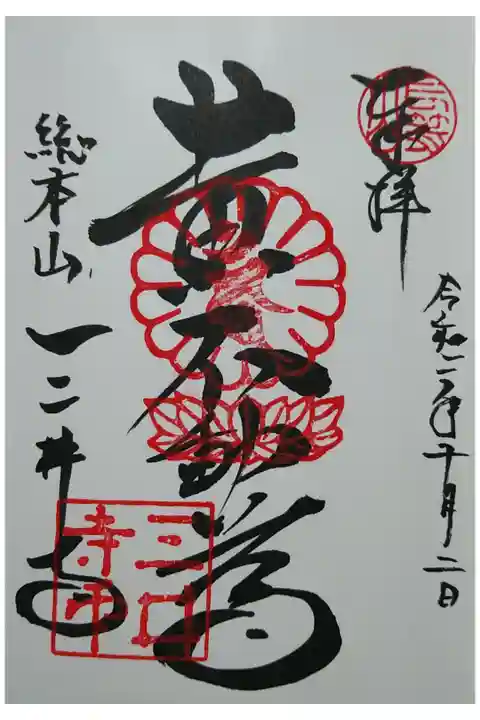 奉拝
令和二年十月二日
黄不動尊
総本山 三井寺